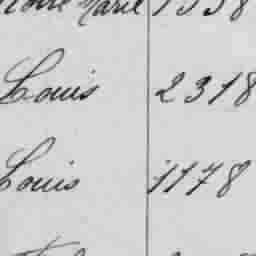 Marie 1338
Louis 2318
Louis 1178